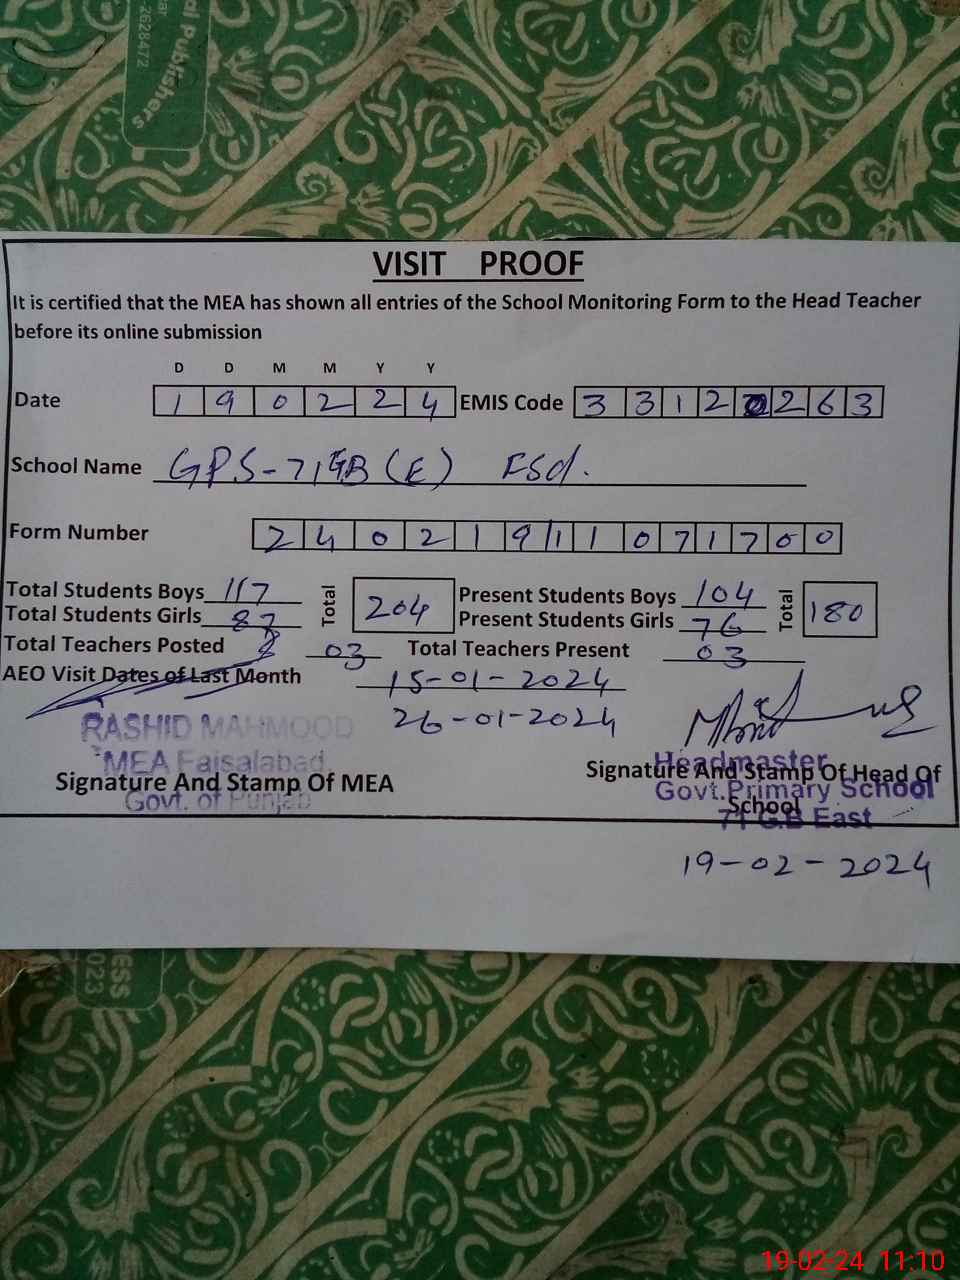 al Publishers
2628472
VISIT PROOF
It is certified that the MEA has shown all entries of the School Monitoring Form to the Head Teacher
before its online submission
D D M M Y Y
Date 1 9 0 2 2 4 EMIS Code 3 3 1 2 0 2 6 3
School Name GPS-71GB (E) Fsd.
Form Number 2 4 0 2 1 9 1 1 0 7 1 7 0 0
Total Students Boys 117 Total 204 Present Students Boys 104 Total 180
Total Students Girls 87 Present Students Girls 76
Total Teachers Posted 03 Total Teachers Present 03
AEO Visit Dates of Last Month 15-01-2024
26-01-2024
RASHID MAHMOOD
MEA Faisalabad
Govt. of Punjab
Signature And Stamp Of MEA
Headmaster
Govt.Primary School
71 G.B East
Signature And Stamp Of Head Of
School
19-02-2024
ESS
023
19-02-24 11:10